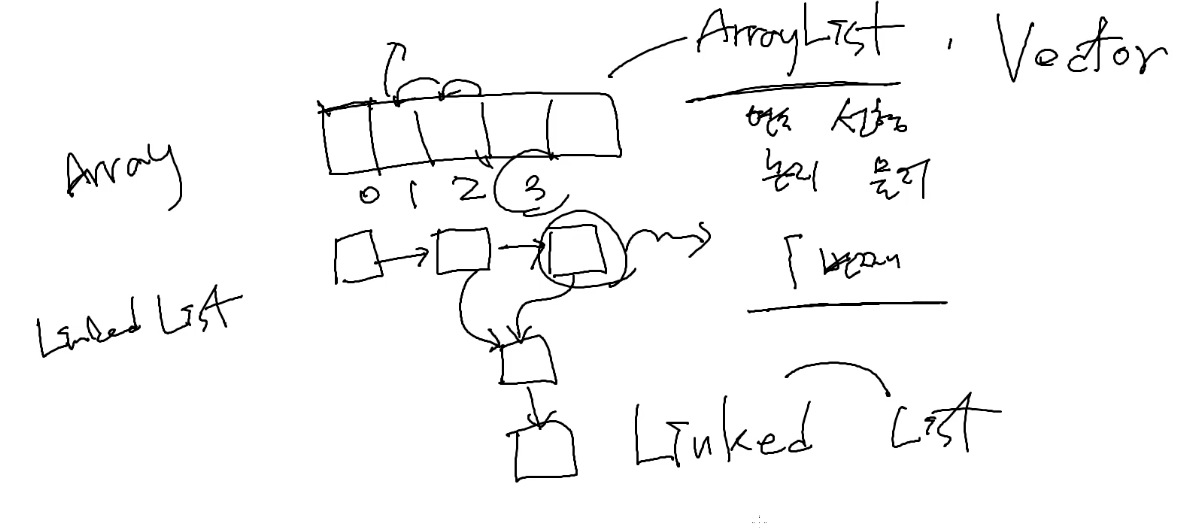 ArrayList , Vector
선형
논리 물리
Array
0 1 2 3
Linked List
Linked List